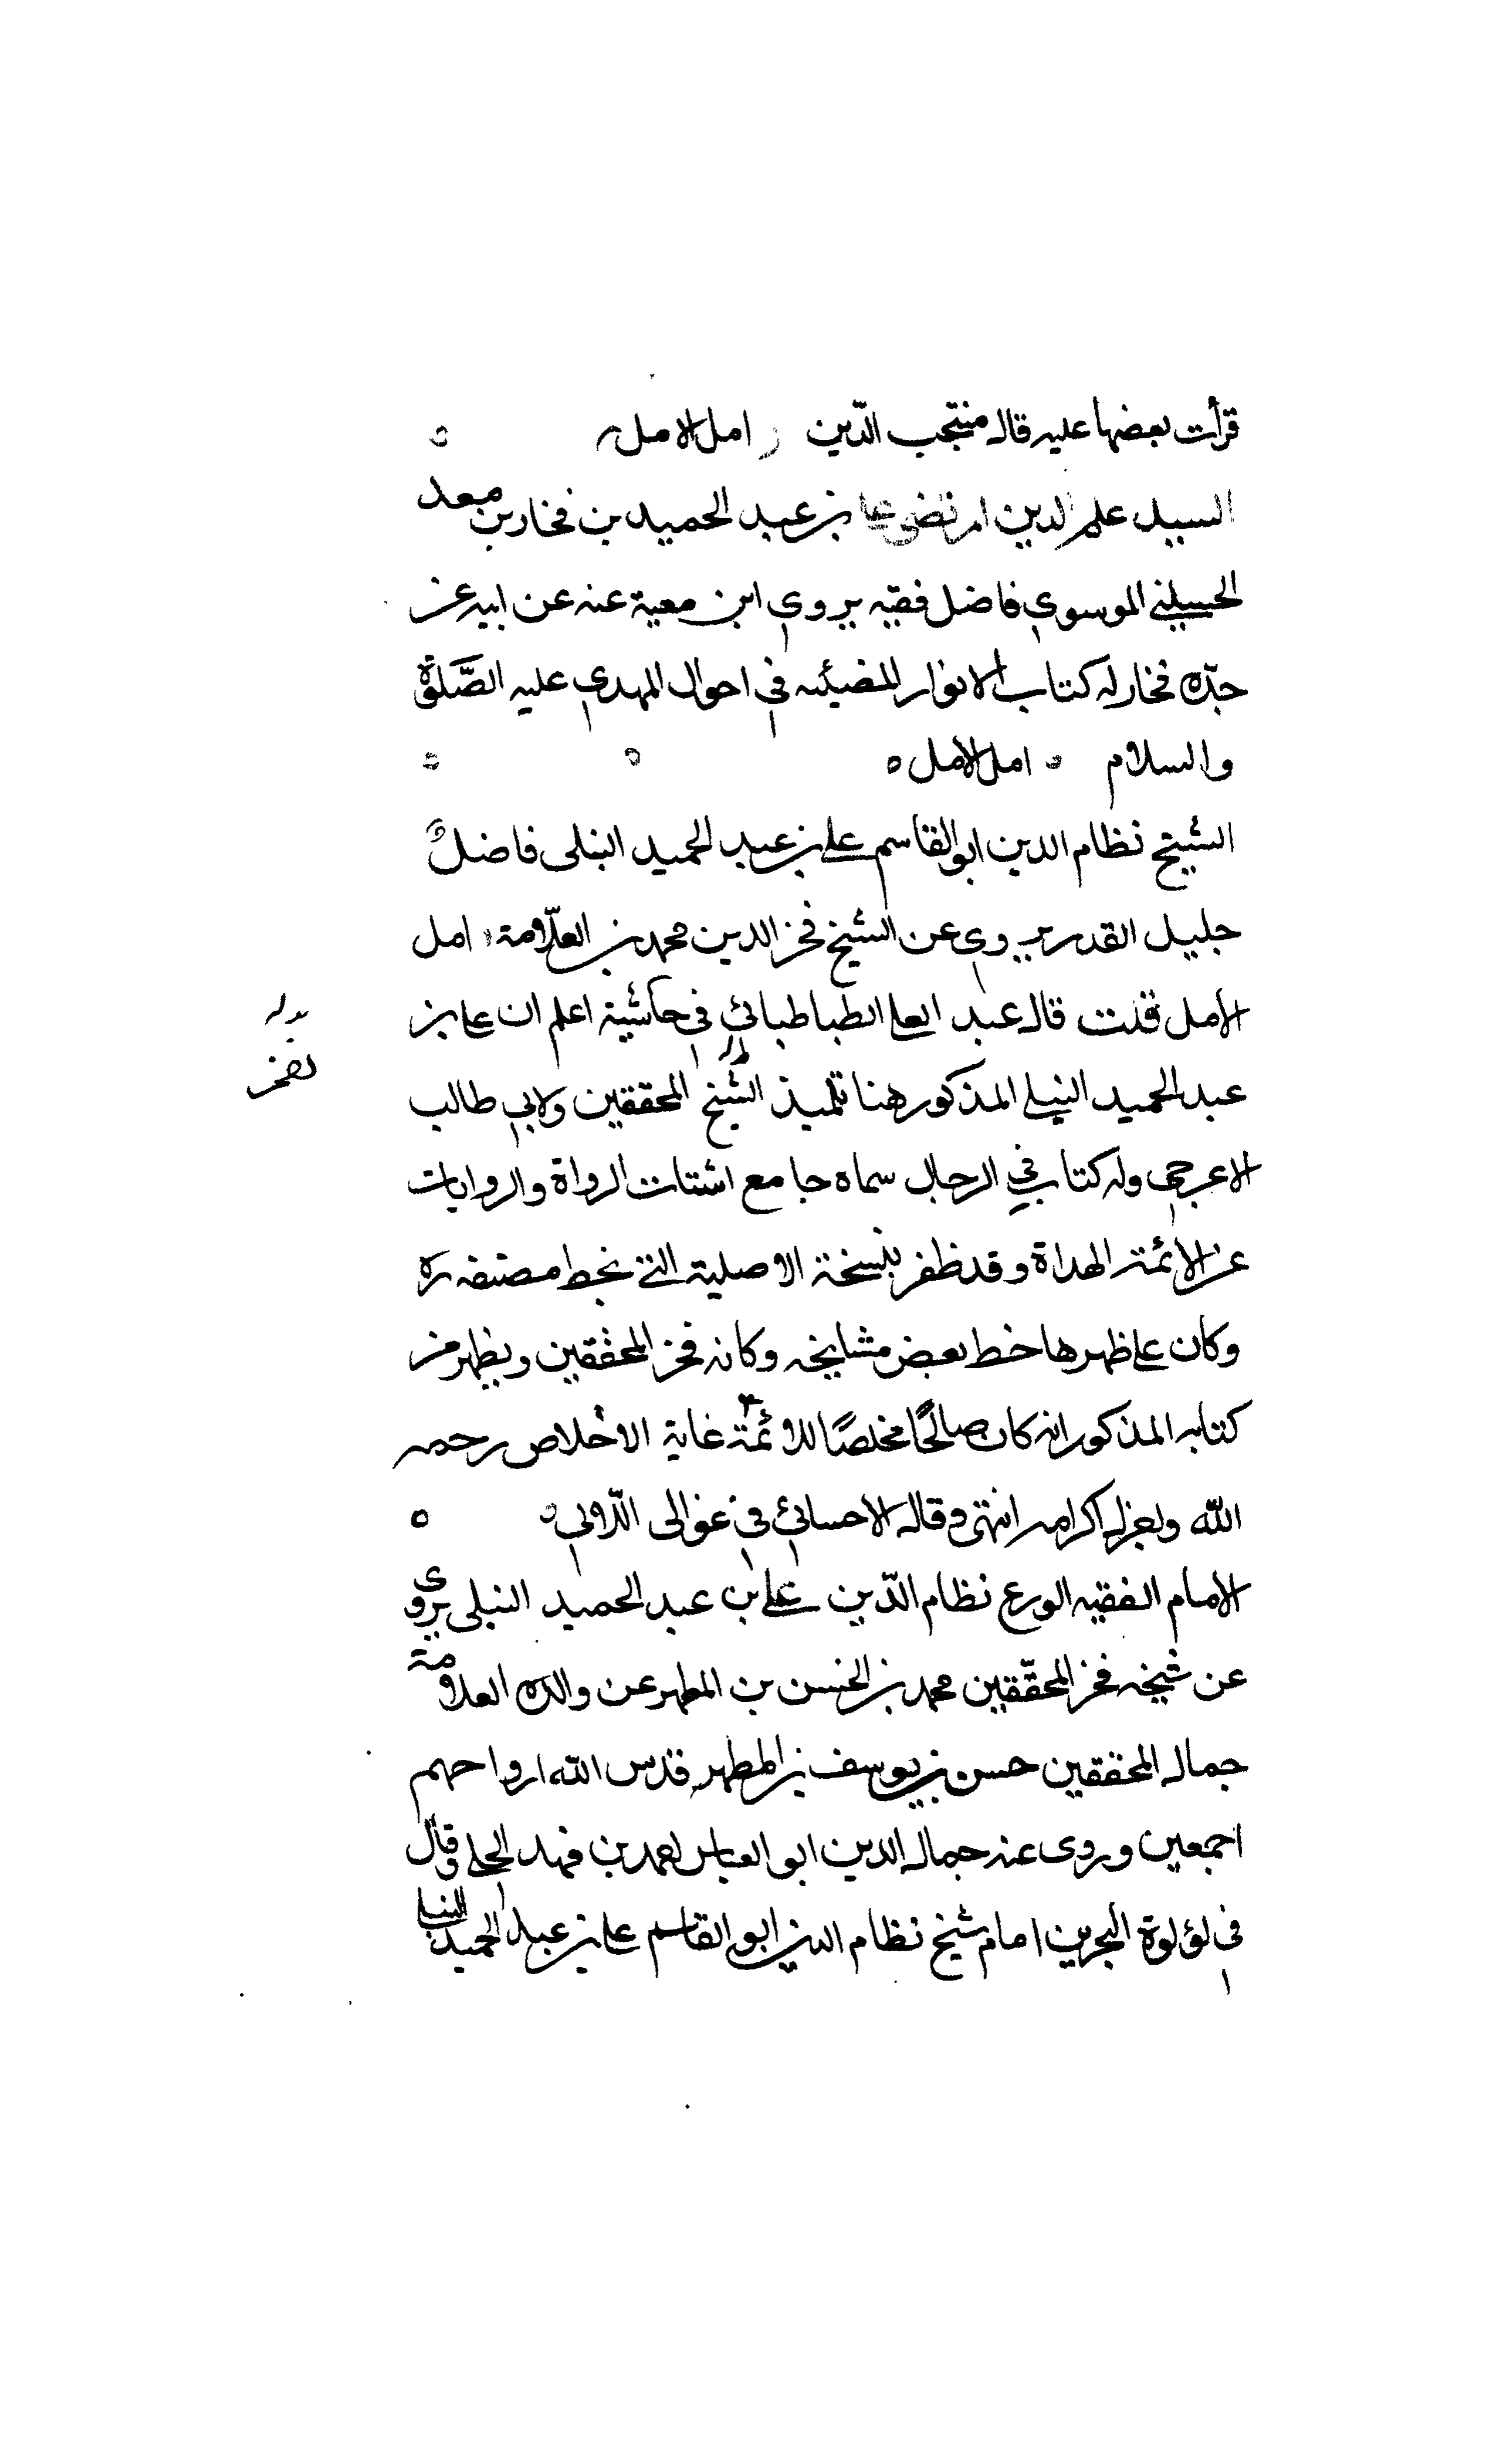 قرأت بعضها عليه قاله منتجب الدّين امل الامل
السيد علم الدين المرتضى علي بن عبد الحميد بن فخار بن معد
الحسيني الموسوي فاضل فقيه يروي ابن معية عنه عن ابيه عن
جدّه فخار له كتاب الانوار المضيئه في احوال المهدي عليه الصّلوة
والسلام امل الامل
الشيخ نظام الدين ابو القاسم علي بن عبد الحميد النيلي فاضلٌ
جليل القدر يروي عن الشيخ فخر الدين محمد بن العلّامة امل
الامل قلت قال عبد العلي الطباطبائي في حاشية اعلم ان علي بن
عبد الحميد النيلي المذكور هنا تلميذ الشيخ المحققين ولابي طالب
بدله
لفخر
الاعرجي وله كتاب في الرجال سماه جامع اشتات الرواة والروايات
عن الائمة الهداة وقد ظفر بنسخة الاصلية التي بخط مصنفه ره
وكان علي ظهرها خط بعض مشايخه وكانه فخر المحققين ويظهر من
كتابه المذكور انه كان صالحًا مخلصًا للائمة غاية الاخلاص رحمه
الله اكرامه انتهى وقال الاحسائي في غوالي اللّالي
الامام الفقيه الورع نظام الدّين علي بن عبد الحميد النيلي يروي
عن شيخه فخر المحقّقين محمد بن الحسن بن المطهر عن والده العلامة
جمال المحققين حسن بن يوسف بن المطهر قدس الله ارواحهم
اجمعين وروى عنه جمال الدين ابو العباس احمد بن فهد الحلي وقال
في لؤلؤة البحرين امام شيخ نظام الدين ابو القاسم علي بن عبد الحميد النيلي